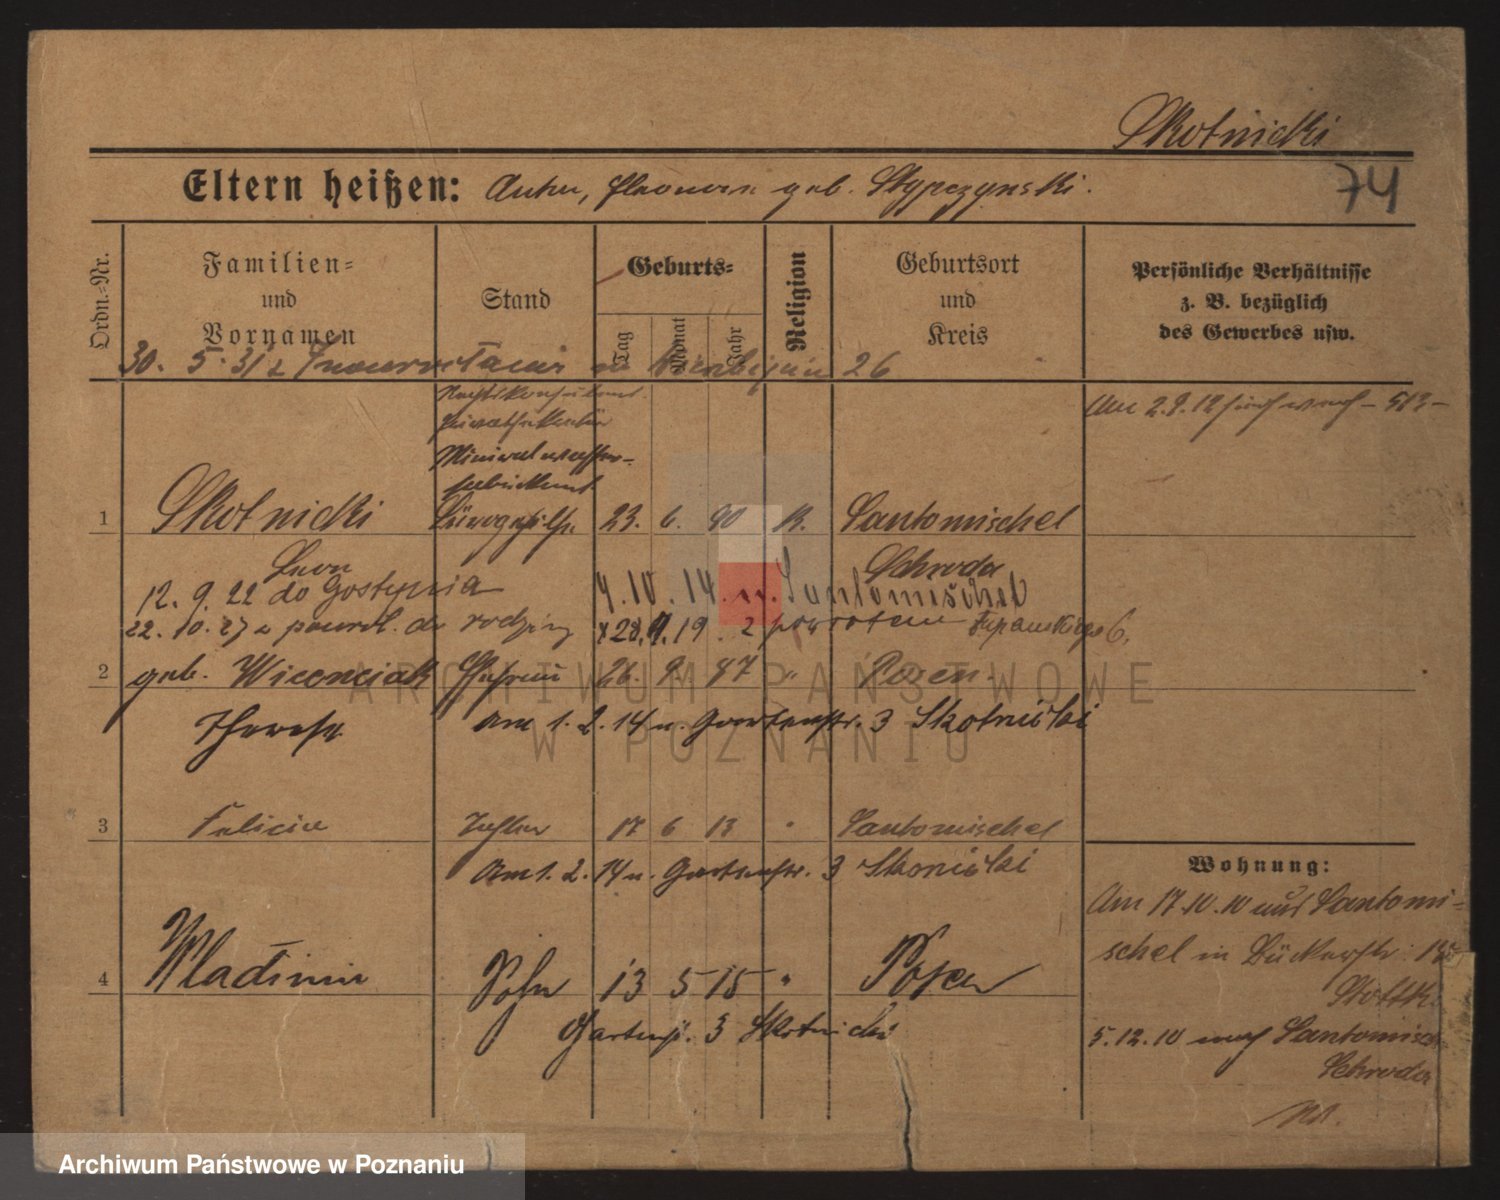 Skotnicki
Eltern heißen: Anton, Eleonora geb. Stypczynski.
74
Ordn.-Nr.
Familien-
und
Vornamen
Stand
Geburts-
Tag
Monat
Jahr
Religion
Geburtsort
und
Kreis
Persönliche Verhältnisse
z. B. bezüglich
des Gewerbes usw.
30. 5. 31 z Inowrocławia 26
Am 2.9.12
Mineralwasser-
1 Skotnicki Bürogehilfe 23. 6. 90 K. Santomischel
Leon Schroda
12. 9. 22 do Gostynia 4.10.14. n. Santomischel
22. 10. 27 z powrot. do rodziny 28.9.19. z powrotem 6,
2 geb. Wicenciak Ehefrau 26. 9. 87 " Posen.
Therese am 1. 2. 14 n. Gartenstr. 3 Skotnicki
3 Felicia Tochter 17 6 13 " Santomischel
Am 1. 2. 14 n. Gartenstr. 3 Skotnicki
Wohnung:
Am 17.10.10 aus Santomi-
schel in Bückerstr.
4 Wladimir Sohn 13 5 15 " Posen
Gartenstr. 3 Skotnicki
5.12.10 nach Santomisch
Schroda
ARCHIWUM PAŃSTWOWE
W POZNANIU
Archiwum Państwowe w Poznaniu